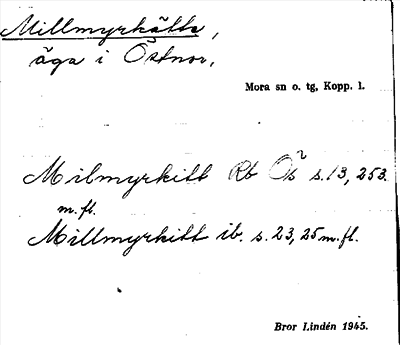 Millmyrkätte,
äga i Östnor.
Mora sn o. tg, Kopp. l.
Milmyrkitt Rb Ös² s. 13, 253.
m. fl.
Millmyrkitt ib. s. 23, 25 m. fl.
Bror Lindén 1945.